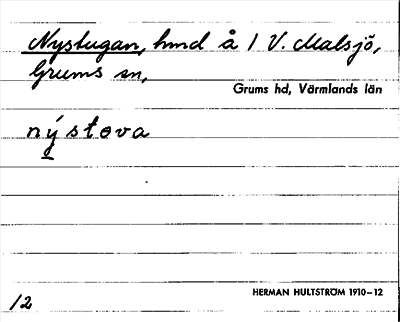 Nystugan, hmd å 1 V. Malsjö,
Grums sn,
Grums hd, Värmlands län
nýstova
HERMAN HULTSTRÖM 1910–12
12